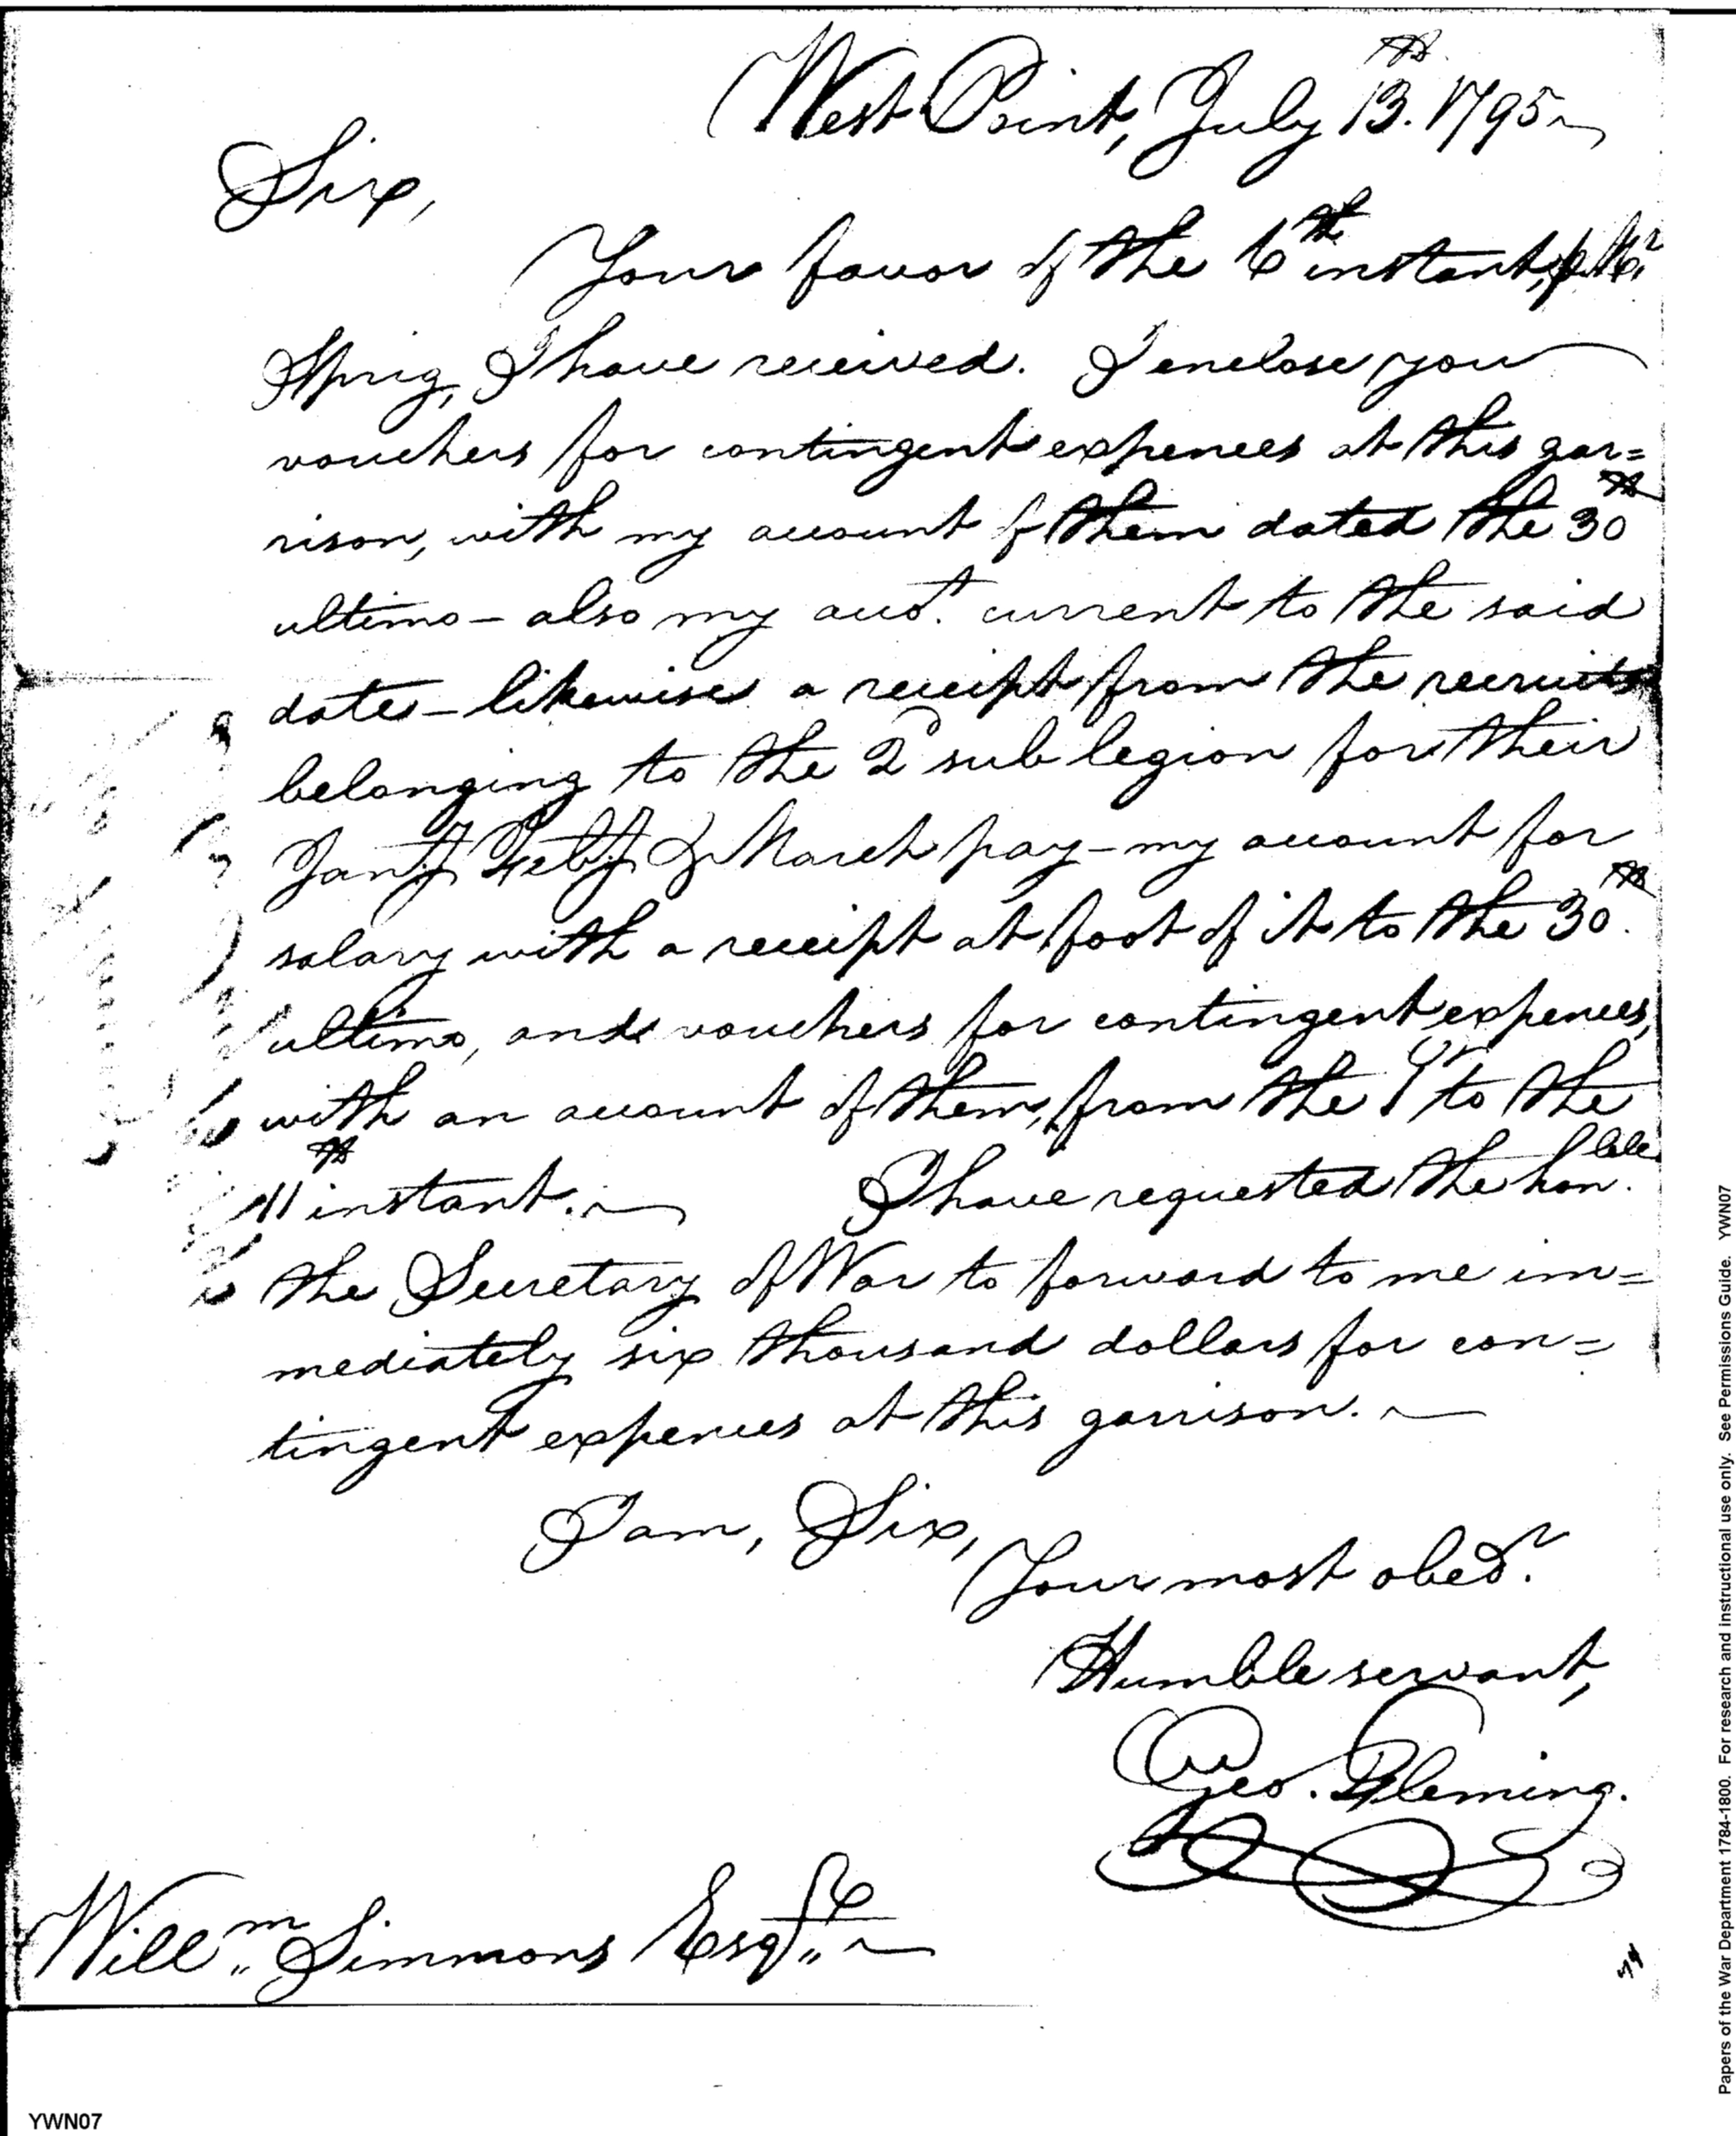 West Point, July 13th. 1795
Sir,
Your favor of the 6th instant, p Mr.
Sprig, I have received. I enclose you
vouchers for contingent expences at this gar=
rison, with my account of them dated the 30th
ultimo - also my acct. current to the said
date - likewise a receipt from the recruits
belonging to the 2d sub legion for their
Jany. Feby. & March pay - my account for
salary with a receipt at foot of it to the 30th.
ultimo, and vouchers for contingent expences,
with an account of them, from the 1st to the
11th instant. I have requested the honble.
the Secretary of War to forward to me im=
mediately six thousand dollars for con=
tingent expences at this garrison.
I am, Sir,
Your most obedt.
Humble servant,
Geo. Fleming.
Willm. Simmons Esqr.
74
YWN07
Papers of the War Department 1784-1800. For research and instructional use only. See Permissions Guide. YWN07